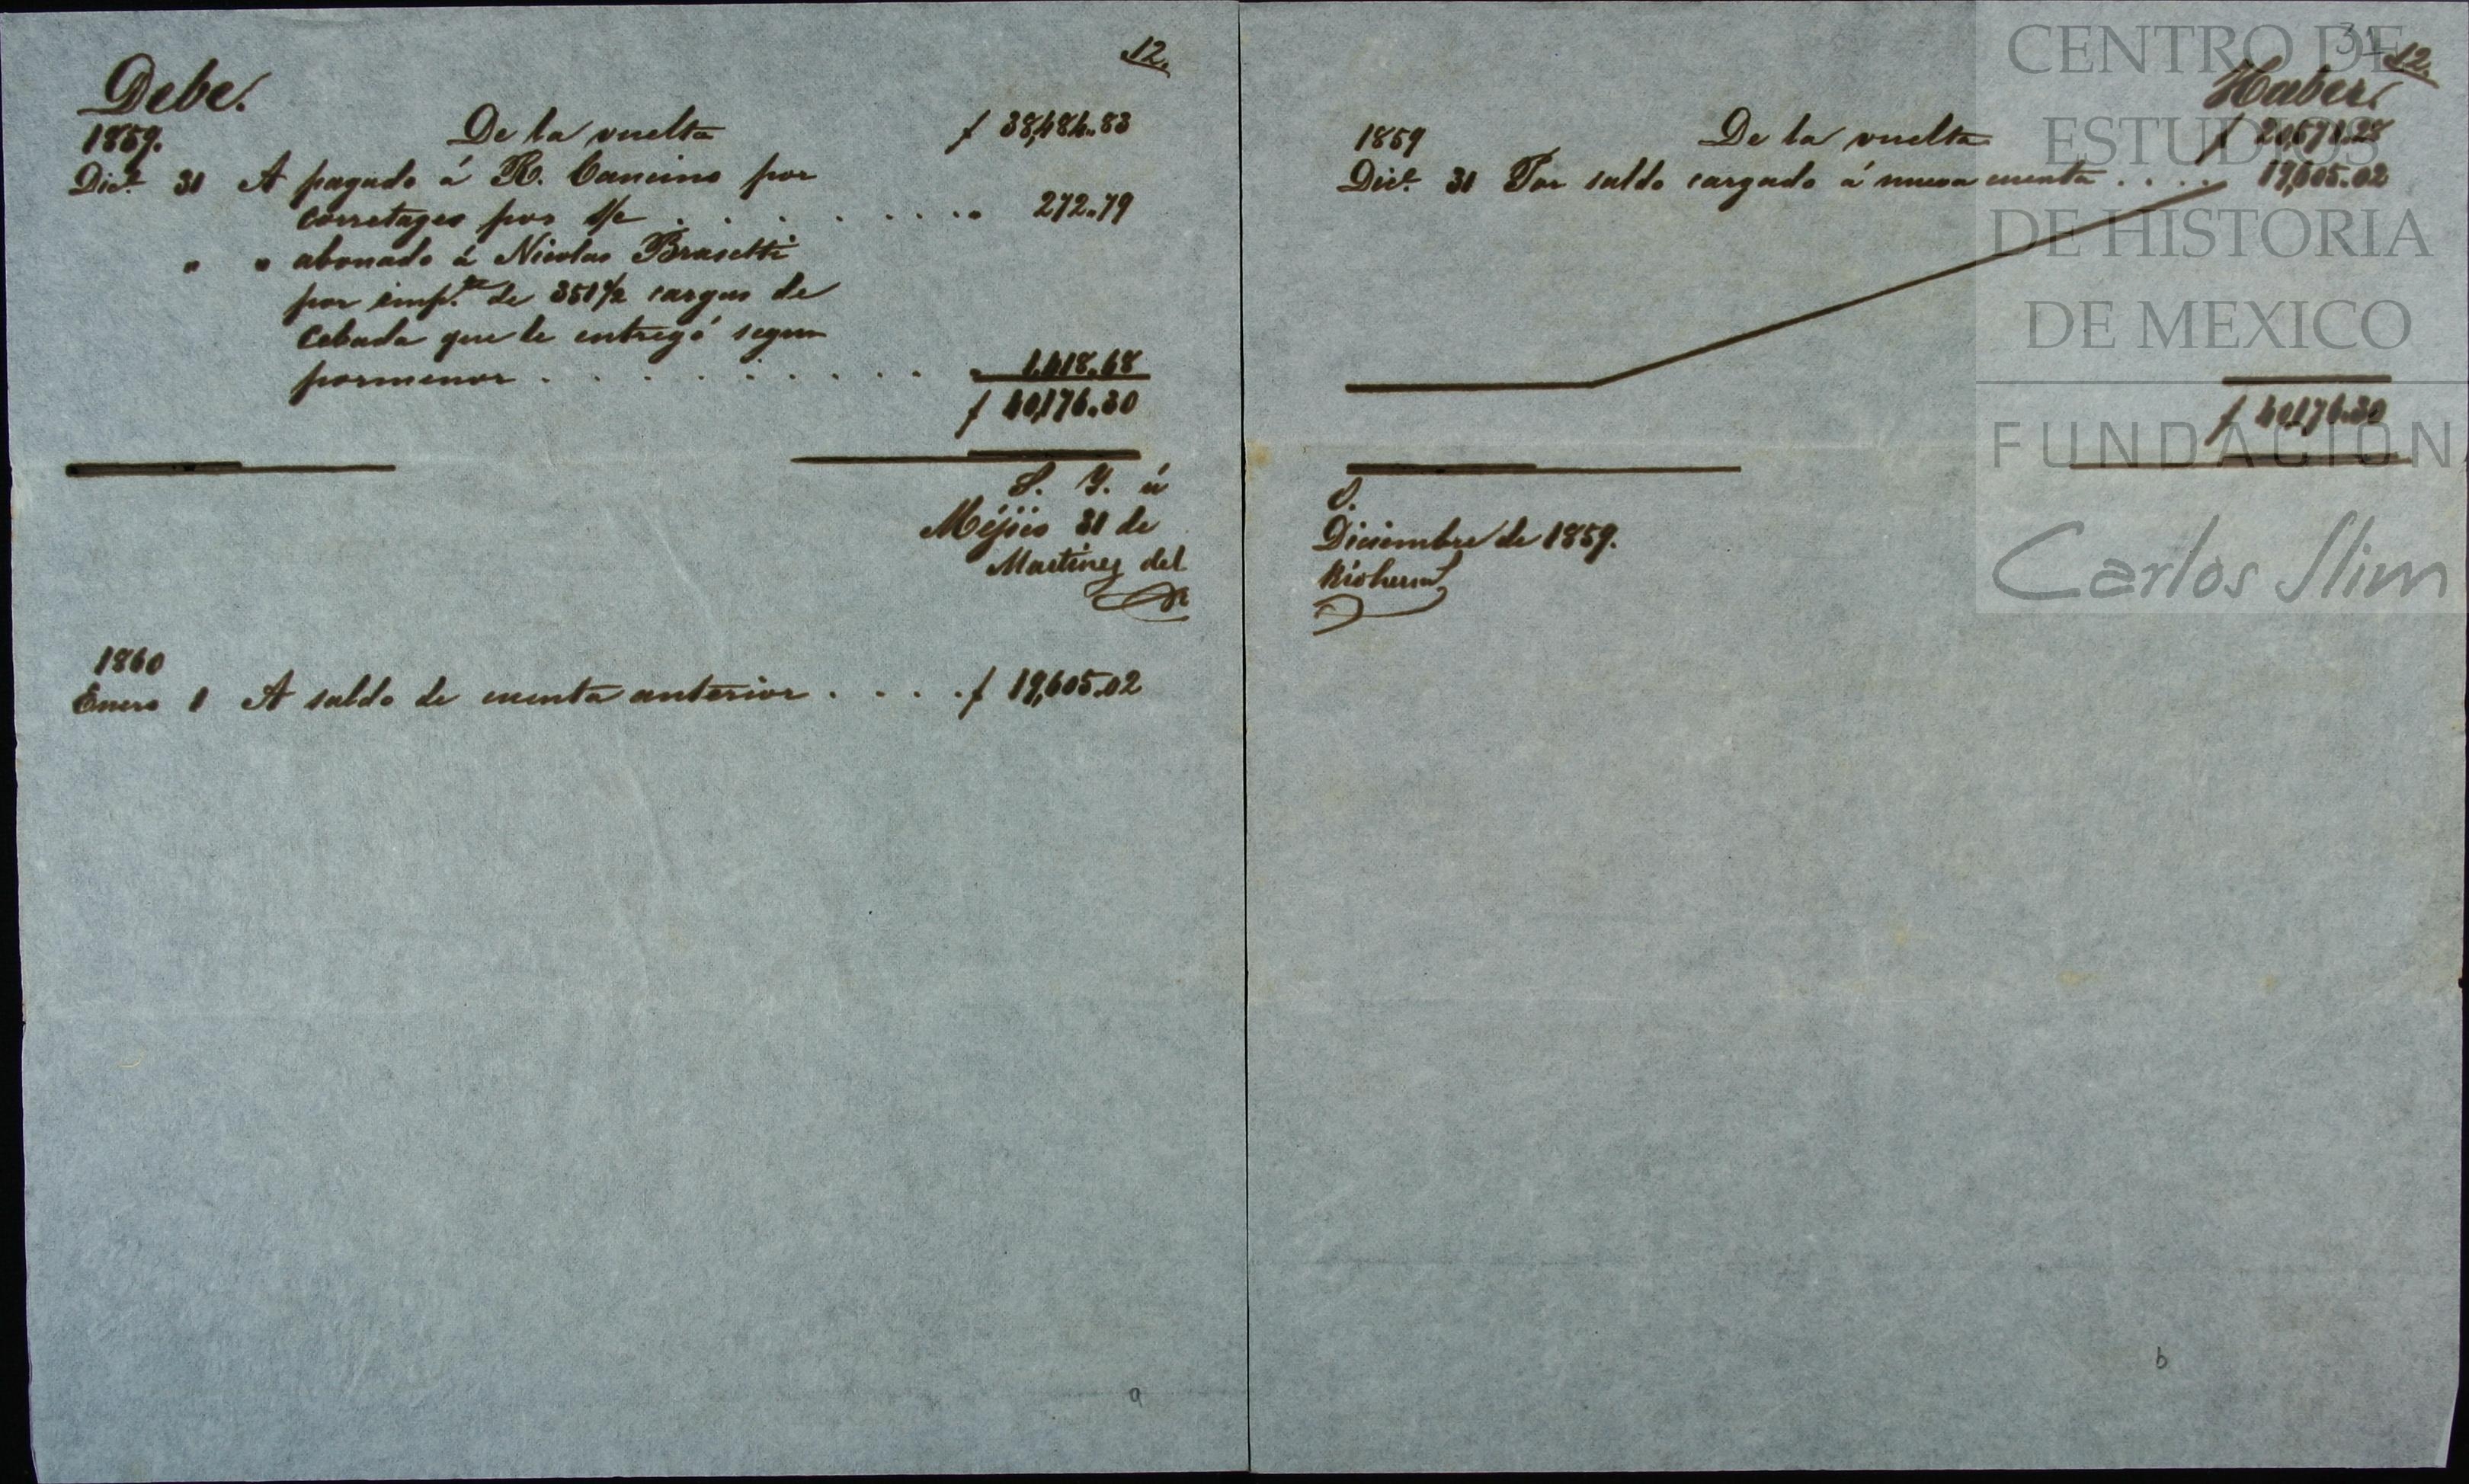 12.
Debe.
1859.
De la vuelta $ 38,484.83
Dic.e 31 A pagado á R. Cancino por
corretages por s/c . . . . . . . . . 272.79
" " abonado á Nicolas Brasetti
por imp.te de 351 1/2 cargas de
Cebada que le entregó segun
pormenor . . . . . . . . . " 1,418.68
$ 40,176.30
S. Y. ú
Méjico 31 de
Martinez del
1860
Enero 1 A saldo de cuenta anterior . . . . $ 19,605.02
a
31
12.
Haber.
1859
De la vuelta $ 20,571.28
Dic.e 31 Por saldo cargado á nueva cuenta . . . . 19,605.02
$ 40,176.30
O.
Diciembre de 1859.
Rio herm.s
b
CENTRO DE
ESTUDIOS
DE HISTORIA
DE MEXICO
FUNDACIÓN
Carlos Slim